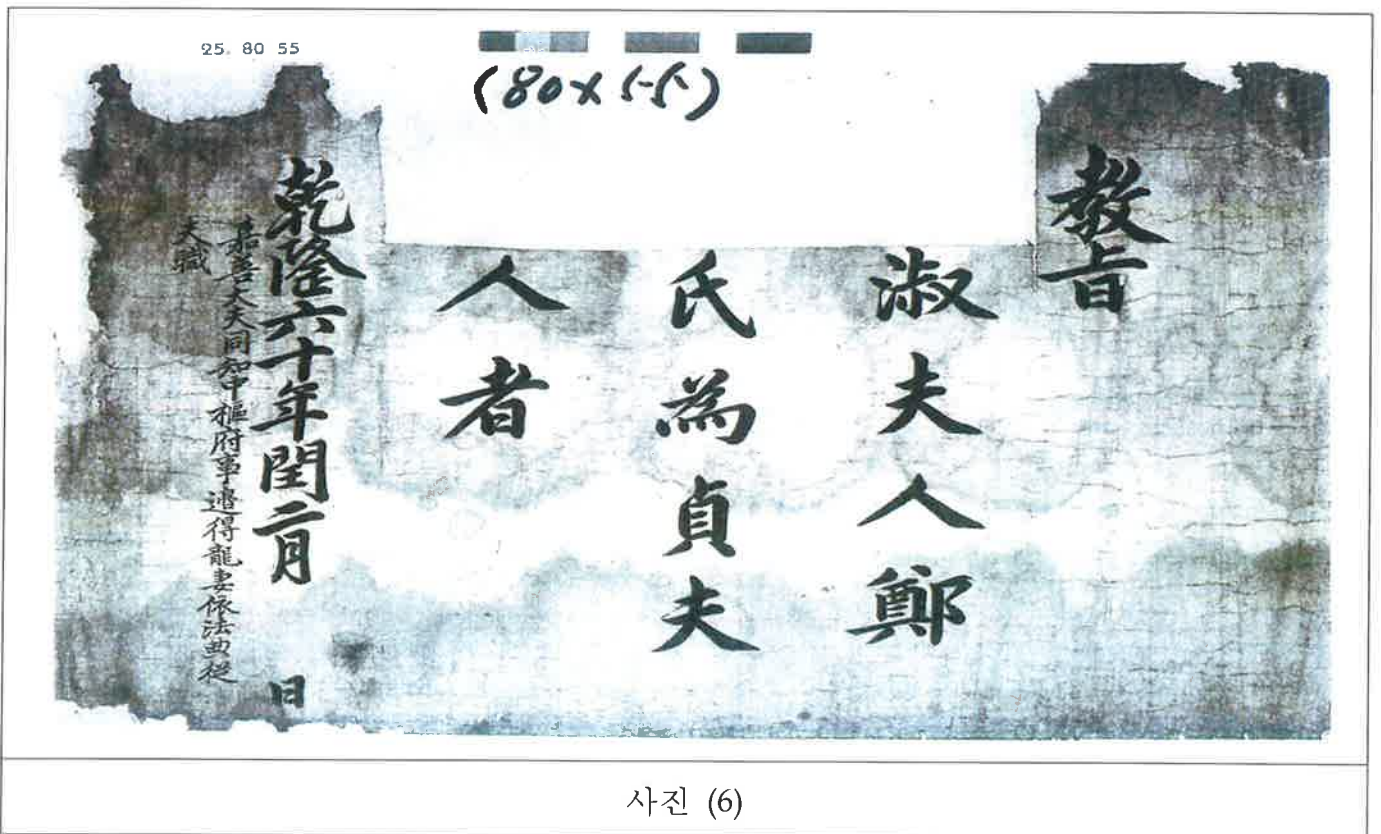 25. 80 55
(80×55)
教旨
淑夫人鄭
氏為貞夫
人者
乾隆六十年閏二月 日
嘉善大夫同知中樞府事邉得龍妻依法典從
夫職
사진 (6)